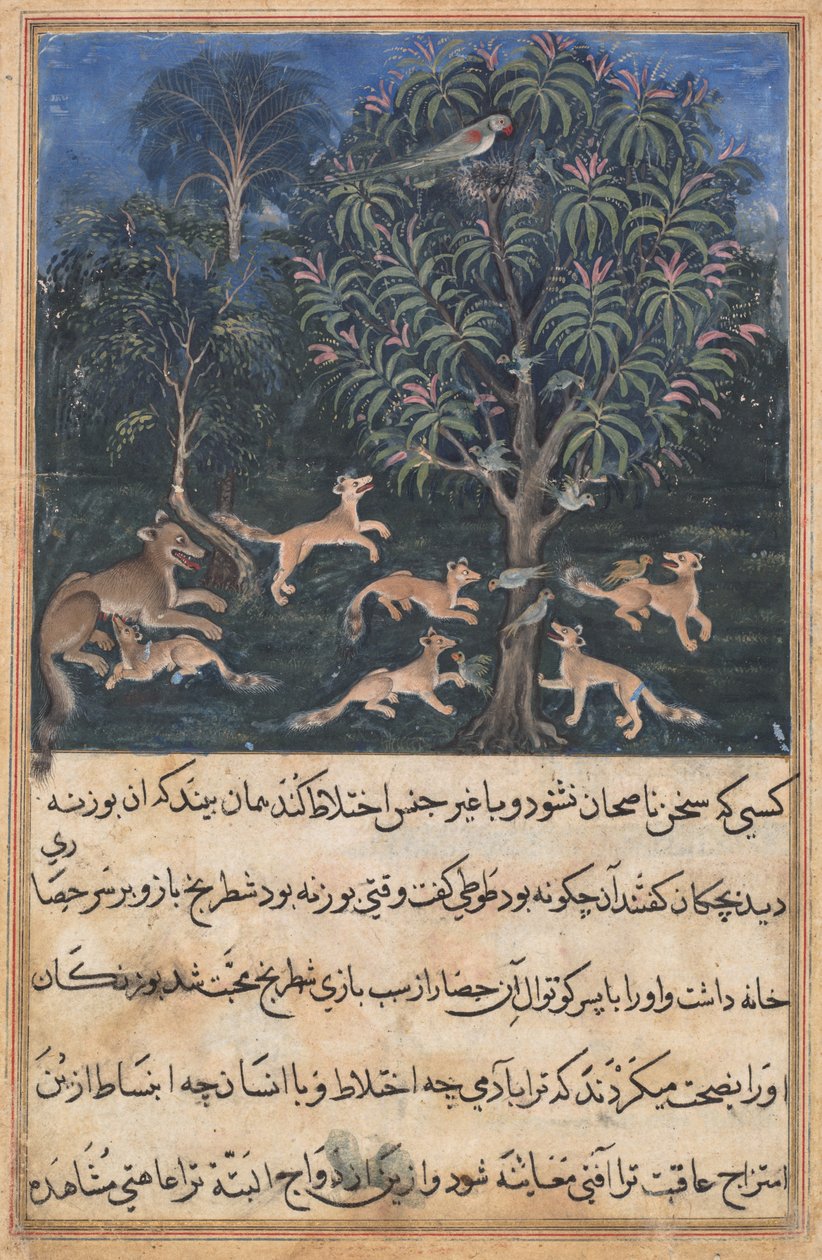 کسی که سخن ناصحان نشنود و با غیر جنس اختلاط کند همان بیند که ان بوزنه
دید بچکان کفتند آن چکونه بود طوطی کفت وقتی بوزنه بود شطرنج باز و بر سر حصاری
خانه داشت و او را با پسر کوتوال آن حصار از سبب بازی شطرنج محبّت شد بوزنکان
او را نصیحت میکردند که ترا با آدمی چه اختلاط و با انسان چه انبساط از ین
امتزاج عاقبت ترا آفتی معاینه شود و از ین ازدواج البتّة ترا عاهتی مشاهده